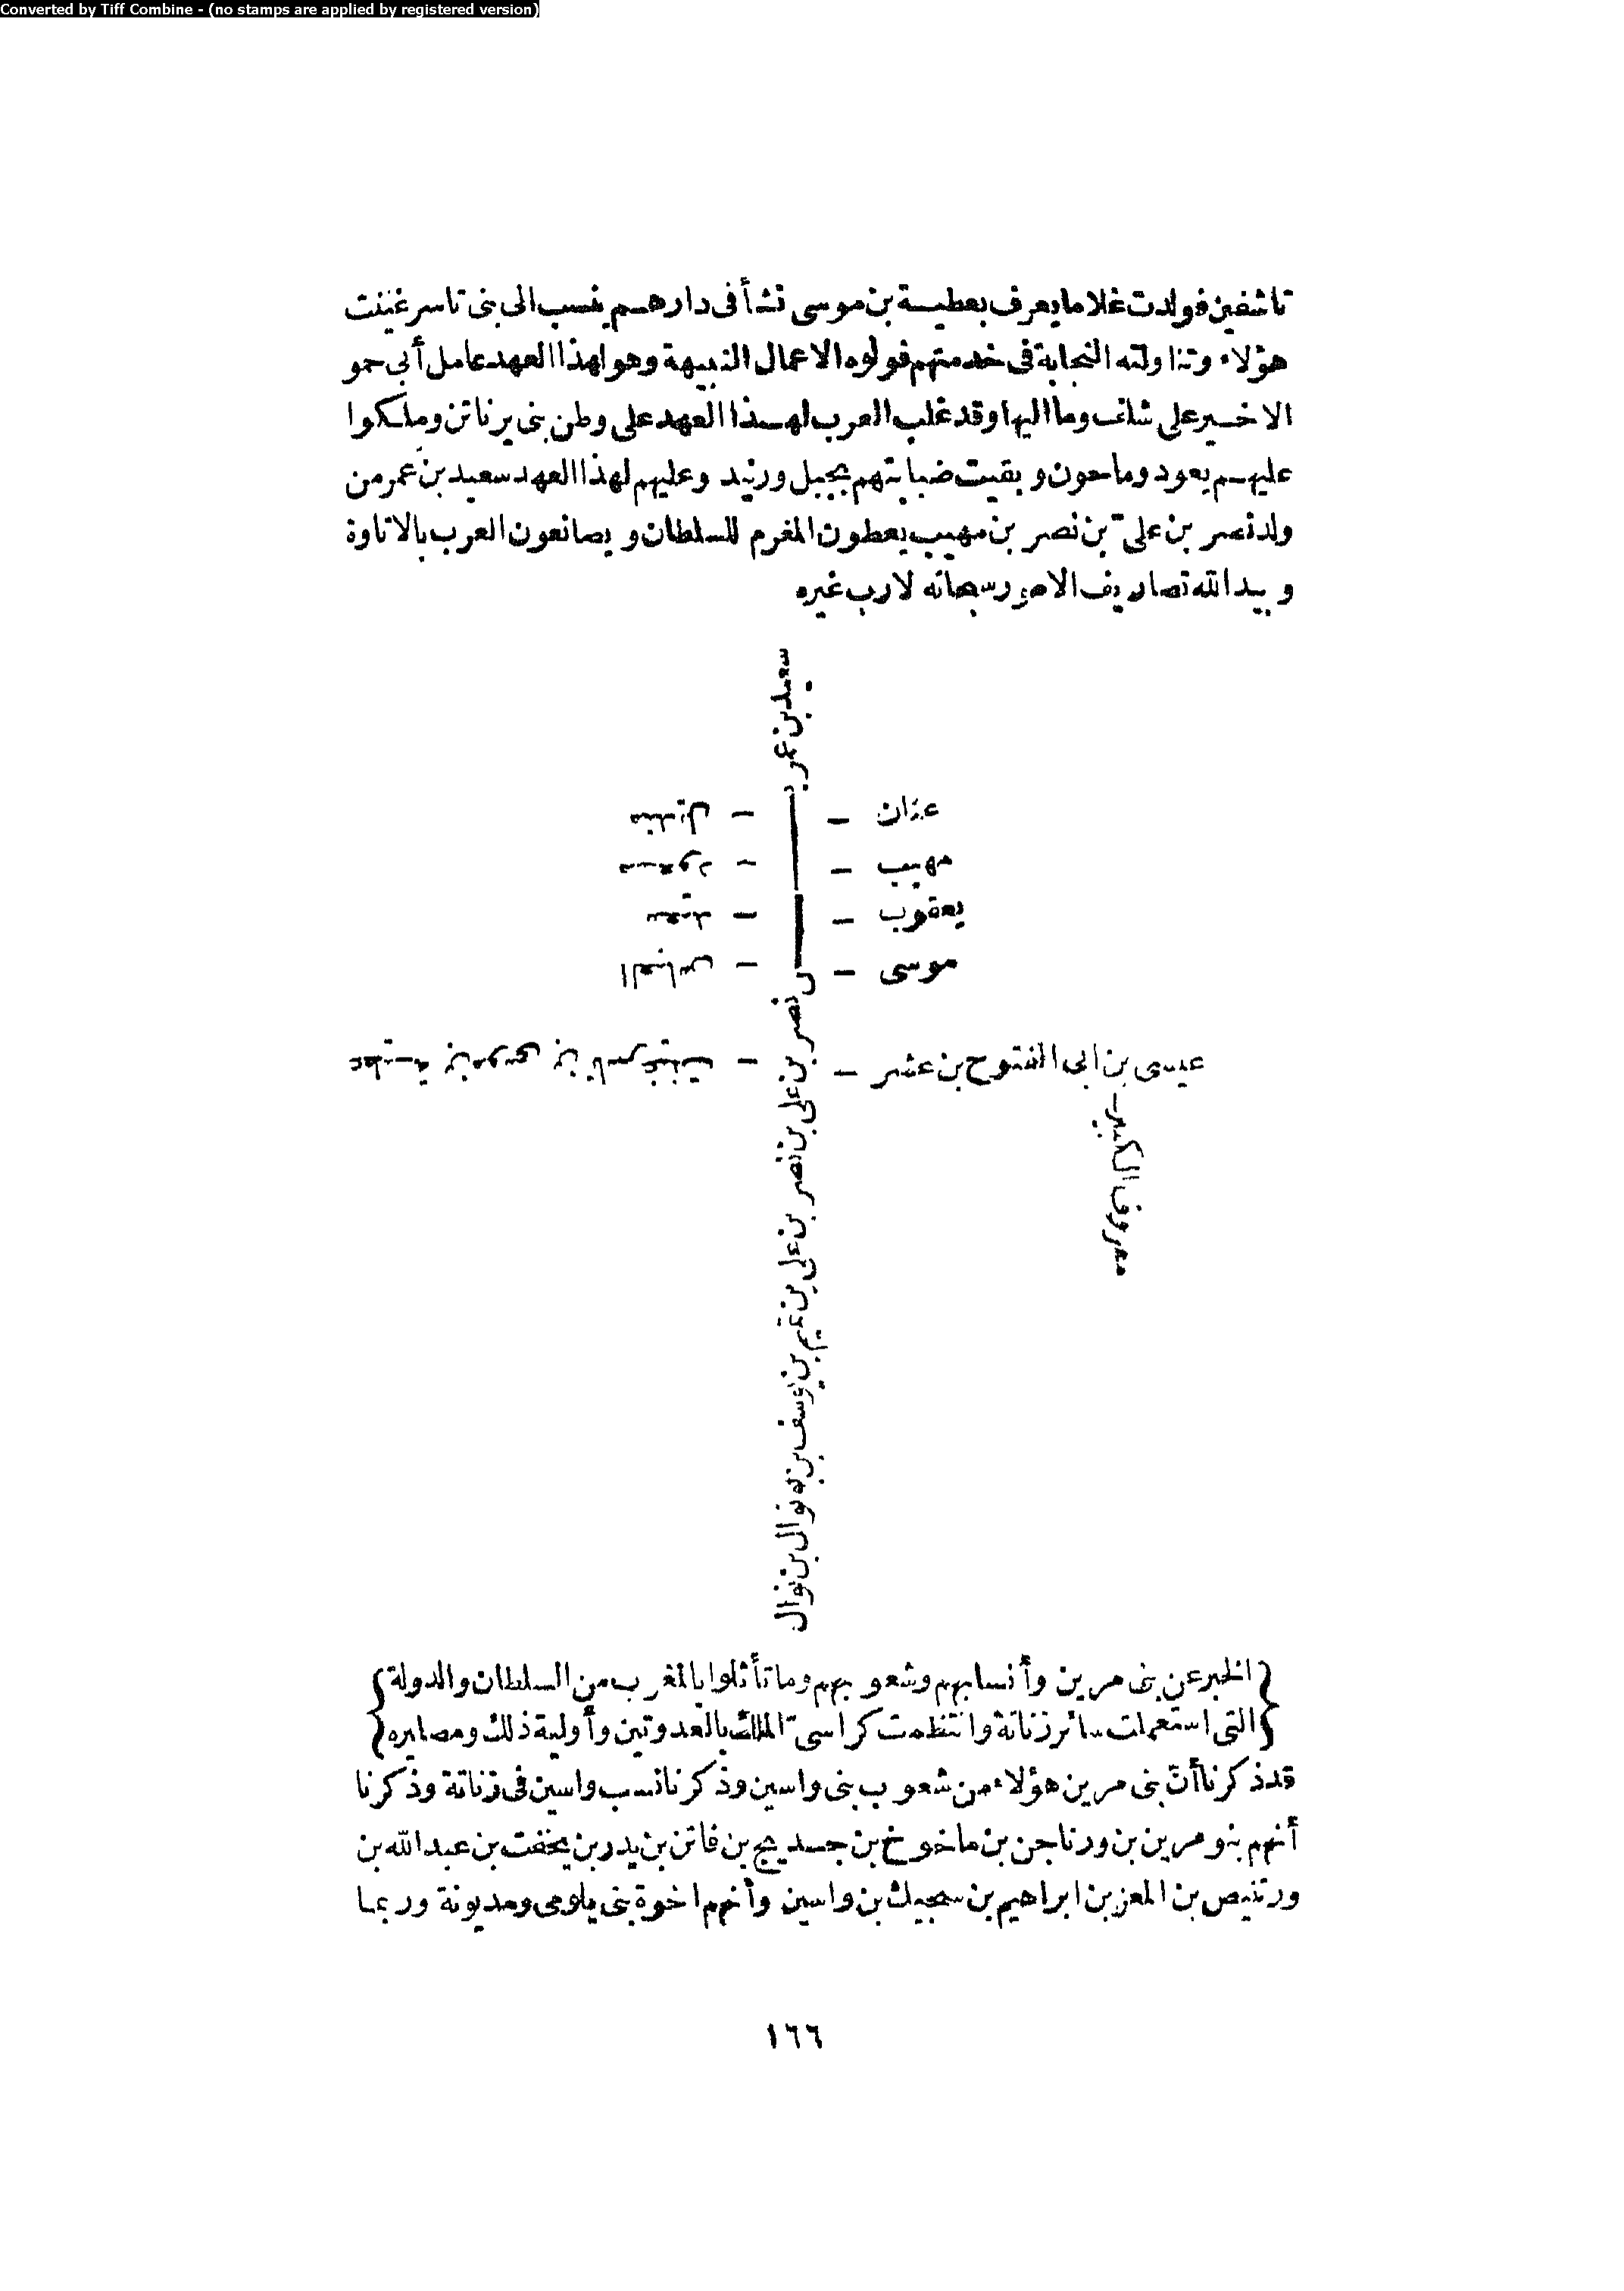 Converted by Tiff Combine - (no stamps are applied by registered version)
تاشفين فولدت غلاما يعرف بعطية بن موسى نشأ فى دارهم ينسب الى بنى تاسرغينت
هؤلاء وتناولته النجابة فى خدمتهم فولوه الاعمال النبيهة وهو لهذا العهد عامل أبى حمو
الاخير على شلف وما اليها وقد غلب العرب لهذا العهد على وطن بنى يرناتن وملكوا
عليهم يعود وماحون وبقيت ضبابتهم بجبل ورنيد وعليهم لهذا العهد سعيد بن عمر من
ولد نصر بن على بن نصر بن مهيب يعطون المغرم للسلطان ويصانعون العرب بالاتاوة
وبيد الله تصاريف الامور سبحانه لا رب غيره
سعيد بن عمر بن
عزان - - منديل
مهيب - - مسعود
يعقوب - - سعيد
موسى - - العباس
نصر بن على بن نصر بن على بن تميم بن يوسف بن بونوال بن نوال
عيسى بن ابى الفتوح بن عنتر - - تاسرغينت بن موسى بن عطية
معروف الكبير -
{الخبر عن بنى مرين وأنسابهم وشعوبهم وما تأثلوا بالمغرب من السلطان والدولة}
{التى استعملت سائر زناتة وانتظمت كراسى الملك بالعدوتين وأولية ذلك ومصايره}
قد ذكرنا أنّ بنى مرين هؤلاء من شعوب بنى واسين وذكرنا نسب واسين فى زناتة وذكرنا
أنهم بنو مرين بن ورتاجن بن ماخوخ بن جديج بن فاتن بن يدر بن يخفت بن عبد الله بن
ورتنيص بن المعز بن ابراهيم بن سجيك بن واسين وأنهم اخوة بنى يلومى ومديونة وربما
١٦٦